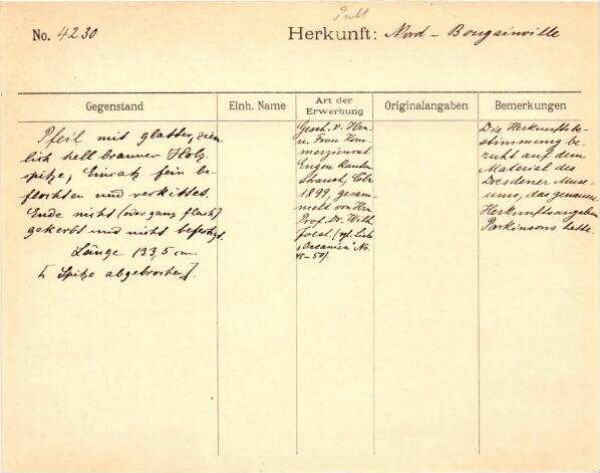 No. 4230
Herkunft: Nord - Bougainville
Gegenstand
Einh. Name
Art der
Erwerbung
Originalangaben
Bemerkungen
Pfeil mit glatter, ziem
lich hell brauner Holz
spitze, Einsatz fein be
flochten und verkittet.
Ende nicht (oder ganz flach)
gekerbt und nicht
Länge 133,5 cm
[Spitze abgebrochen].
Gesch. v. Hrn.
u. Frau Kom
merzienrat
Eugen Rauten
strauch, Cöln
1899, gesam-
melt von Hrn
Prof. Dr. Wilh.
Joest. (vgl. Liste
"Oceanien" No.
45-50).
Die Herkunftsbe-
stimmung be-
ruht auf dem
Material des
Dresdener Muse-
ums, das genaue
Herkunftsangaben
Parkinsons hatte.